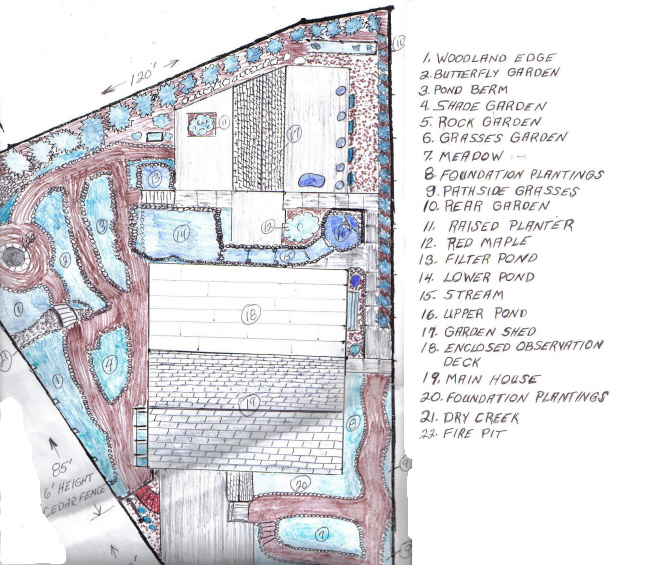 120'
10
11
17
13
3
14
12
16
15
2
1
18
4
1
19
8
20
7
85'
6' HEIGHT
CEDAR FENCE
1. WOODLAND EDGE
2. BUTTERFLY GARDEN
3. POND BERM
4. SHADE GARDEN
5. ROCK GARDEN
6. GRASSES GARDEN
7. MEADOW
8. FOUNDATION PLANTINGS
9. PATHSIDE GRASSES
10. REAR GARDEN
11. RAISED PLANTER
12. RED MAPLE
13. FILTER POND
14. LOWER POND
15. STREAM
16. UPPER POND
17. GARDEN SHED
18. ENCLOSED OBSERVATION
DECK
19. MAIN HOUSE
20. FOUNDATION PLANTINGS
21. DRY CREEK
22. FIRE PIT